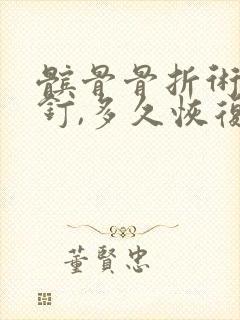 髕骨骨折術
釘,多久恢復
董賢忠